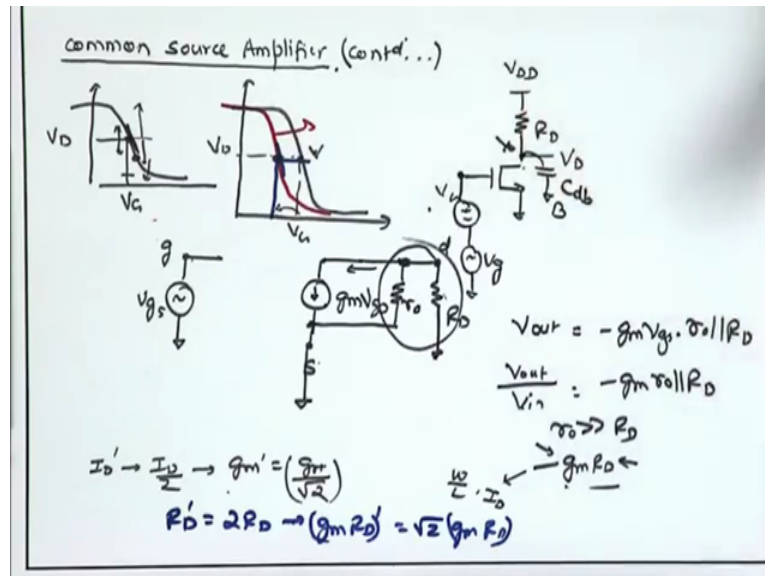 Common Source Amplifier (contd'...)
VDD
RD
VD
VG
VD
VG
VD
Cdb
B
Vg
g
vgs
gmVgs
ro
d
RD
S
Vout = -gmVgs. ro||RD
Vout/Vin = -gm ro||RD
ro >> RD
W/L . ID ← gmRD ←
ID' → ID/2 → gm' = (gm/√2)
RD' = 2RD → (gm RD)' = √2 (gm RD)